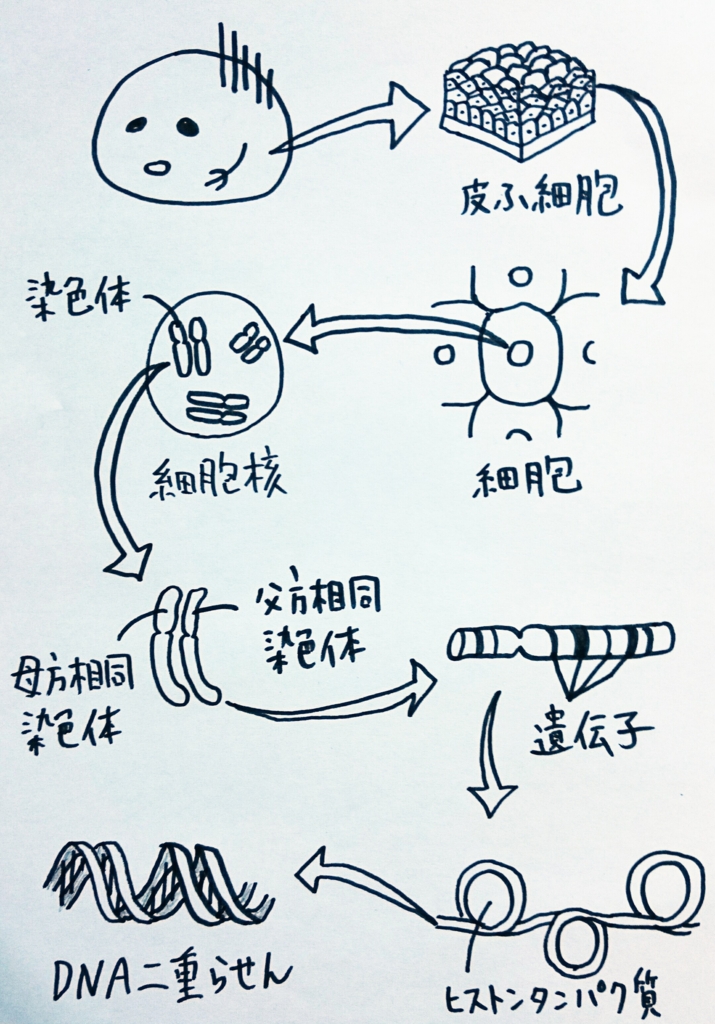 皮ふ細胞
染色体
細胞核
細胞
父方相同
染色体
母方相同
染色体
遺伝子
DNA二重らせん
ヒストンタンパク質